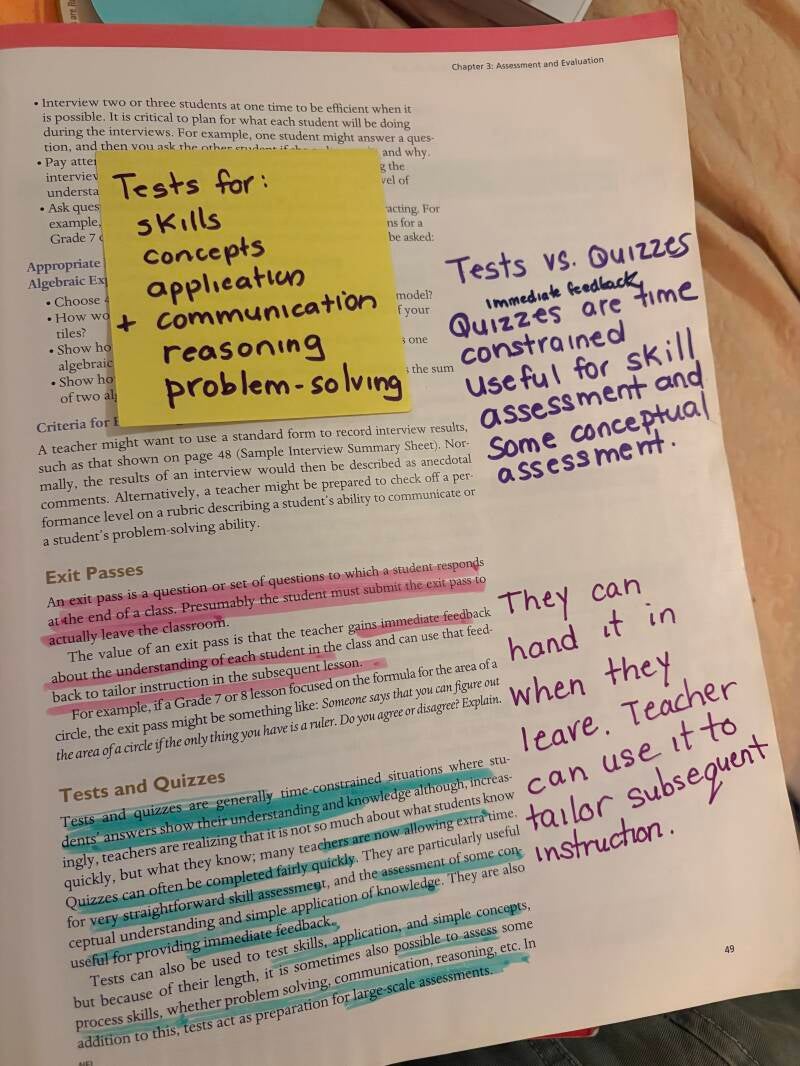 Chapter 3: Assessment and Evaluation
• Interview two or three students at one time to be efficient when it
is possible. It is critical to plan for what each student will be doing
during the interviews. For example, one student might answer a ques-
tion, and then you ask the other student if and why.
• Pay
interview g the
understa vel of
• Ask ques acting. For
example, ns for a
Grade 7 be asked:
Appropriate
Algebraic Ex
• Choose model?
• How wo f your
tiles?
• Show ho one
algebraic
• Show ho the sum
of two al
Criteria for
A teacher might want to use a standard form to record interview results,
such as that shown on page 48 (Sample Interview Summary Sheet). Nor-
mally, the results of an interview would then be described as anecdotal
comments. Alternatively, a teacher might be prepared to check off a per-
formance level on a rubric describing a student's ability to communicate or
a student's problem-solving ability.
Exit Passes
An exit pass is a question or set of questions to which a student responds
at the end of a class. Presumably the student must submit the exit pass to
actually leave the classroom.
The value of an exit pass is that the teacher gains immediate feedback
about the understanding of each student in the class and can use that feed-
back to tailor instruction in the subsequent lesson.
For example, if a Grade 7 or 8 lesson focused on the formula for the area of a
circle, the exit pass might be something like: Someone says that you can figure out
the area of a circle if the only thing you have is a ruler. Do you agree or disagree? Explain.
Tests and Quizzes
Tests and quizzes are generally time-constrained situations where stu-
dents' answers show their understanding and knowledge although, increas-
ingly, teachers are realizing that it is not so much about what students know
quickly, but what they know; many teachers are now allowing extra time.
Quizzes can often be completed fairly quickly. They are particularly useful
for very straightforward skill assessment, and the assessment of some con-
ceptual understanding and simple application of knowledge. They are also
useful for providing immediate feedback.
Tests can also be used to test skills, application, and simple concepts,
but because of their length, it is sometimes also possible to assess some
process skills, whether problem solving, communication, reasoning, etc. In
addition to this, tests act as preparation for large-scale assessments.
NEL
49
Tests for:
skills
concepts
application
+ communication
reasoning
problem-solving
Tests vs. Quizzes
immediate feedback
Quizzes are time
constrained
useful for skill
assessment and
some conceptual
assessment.
They can
hand it in
when they
leave. Teacher
can use it to
tailor subsequent
instruction.